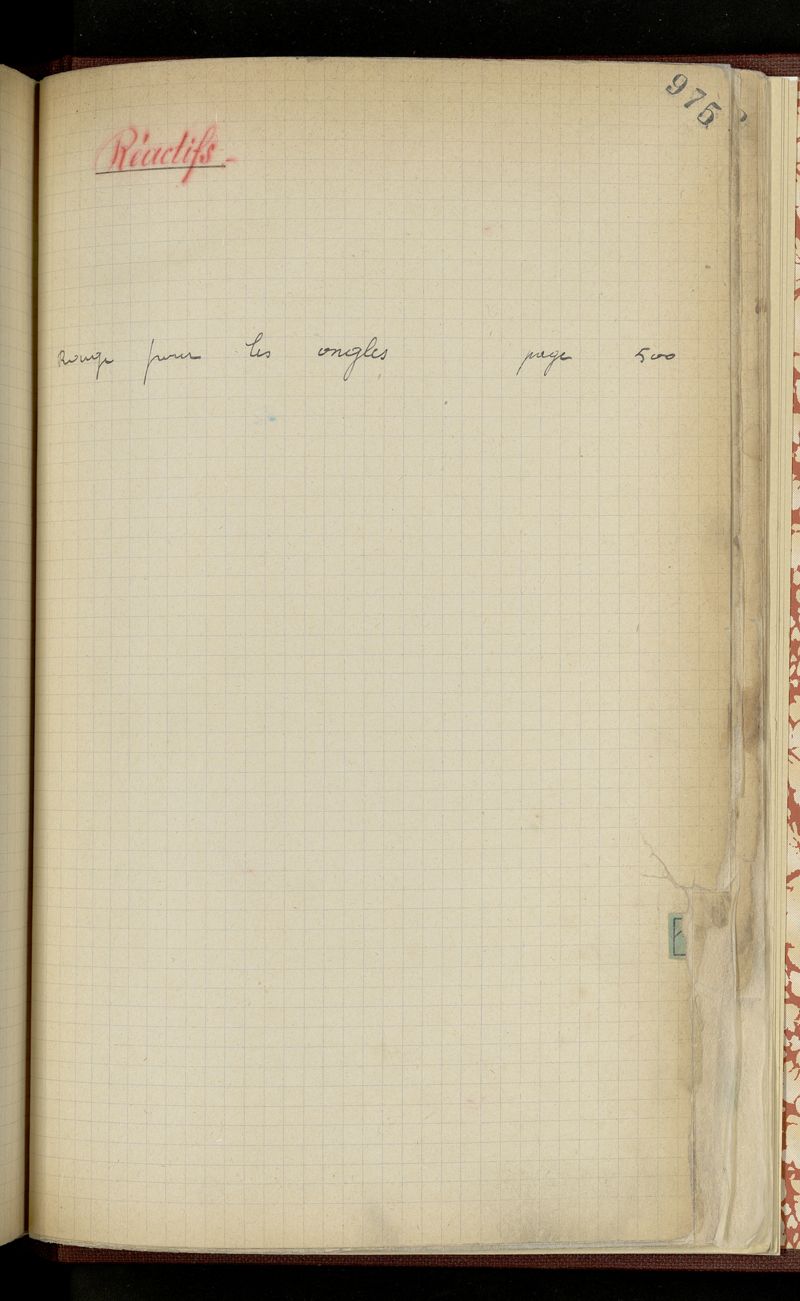 975
Réactifs -
Rouge pour les ongles page 500